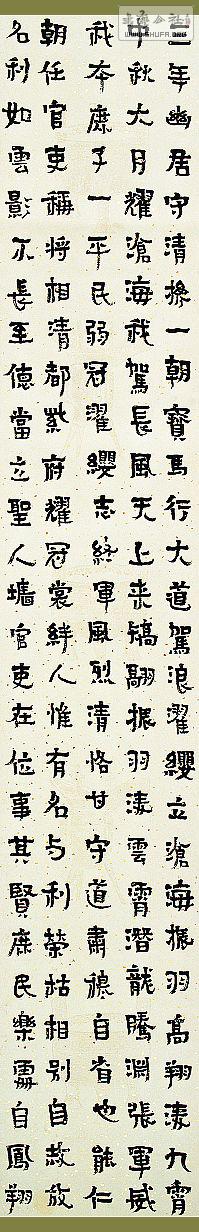 年幽居守清操一朝寶馬行大道駕浪濯纓立滄海振羽高翔淩九霄
中秋大月耀滄海我駕長風天上来翮振羽淩雲霄潛龍騰淵張軍威
我本庶子一平民弱冠濯纓志終軍風烈清恪甘守道肅穆自省也能仁
朝任官吏稱將相清都紫府耀冠裳絆人惟有名与利榮枯相别自故放
名利如雲影不長至德當立聖人墻官吏在位事其賢庶民樂自鳳翔
WWW.SHUFA.ORG